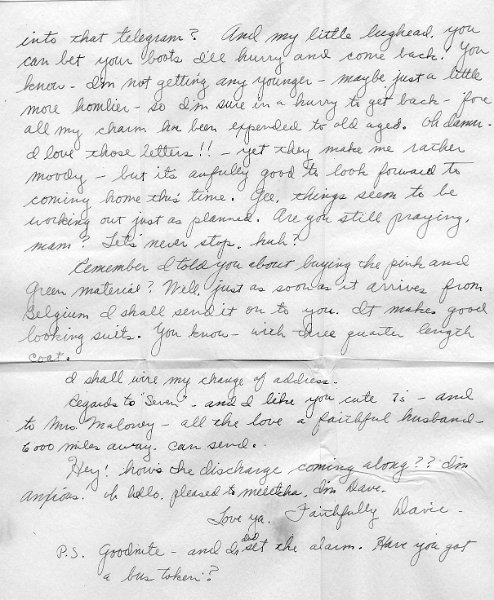 into that telegram? And my little lughead, you
can bet your boots I'll hurry and come back. You
know - I'm not getting any younger - maybe just a little
more homlier - so I'm sure in a hurry to get back - fore
all my charm has been expended to old aged. Oh damn.
I love those letters!! - yet they make me rather
moody - but it's awfully good to look forward to
coming home this time. Gee, things seem to be
working out just as planned. Are you still praying,
mam? Let's never stop, huh?
Remember I told you about buying the pink and
Green material? Well, just as soon as it arrives from
Belgium I shall send it on to you. It makes good
looking suits. You know - with three quarter length
coat.
I shall wire my change of address.
Regards to "Seven" - and I like you cute 7s - and
to Mrs Maloney - all the love a faithful husband -
6000 miles away. can send..
Hey! how's the discharge coming along?? I'm
anxious. Oh hello, pleased to meetcha, I'm Dave.
Love ya. Faithfully Davie -
P.S. Goodnite - and I did set the alarm. Have you got
a bus token?